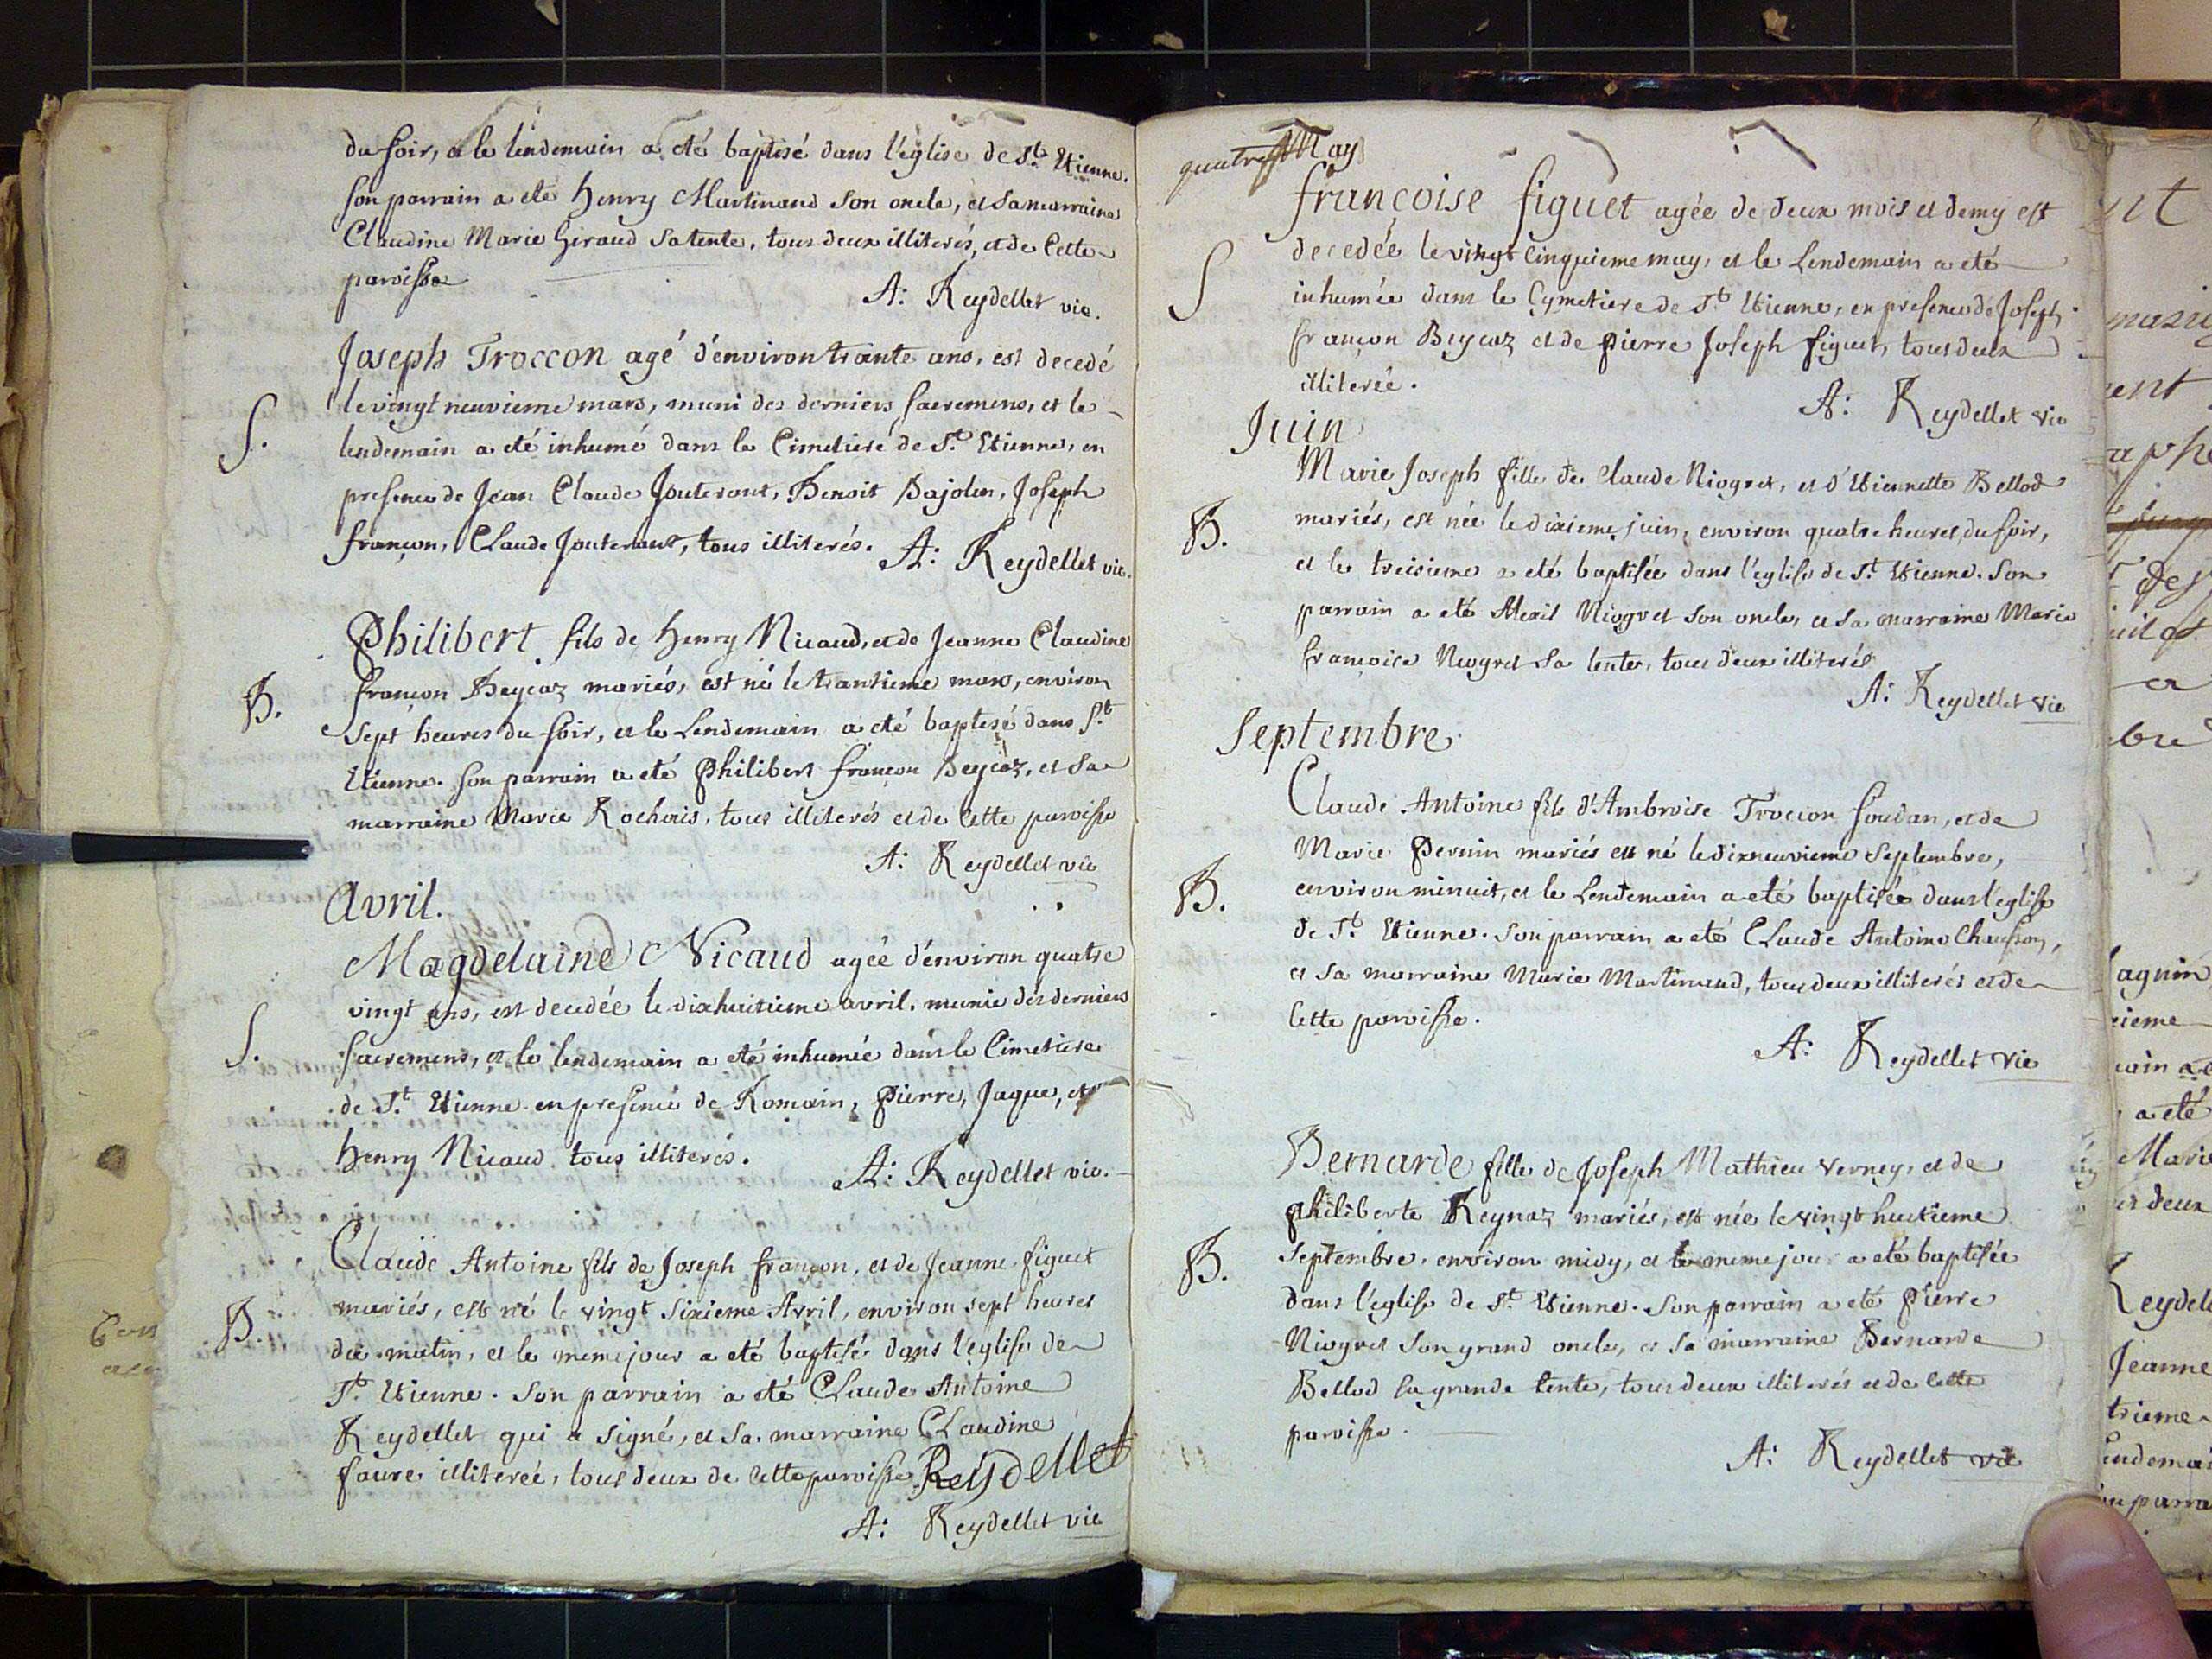 du soir, et le lendemain a eté baptisé dans l'église de St. Etienne.
son parrain a eté henry Martinand son oncle, et sa marraine
Claudine Marie Giraud sa tente, tous deux illiterés, et de cette
paroisse
A: Reydellet vic.
Joseph Troccon agé d'environ trante ans, est decedé
S.
le vingt neuvieme mars, muni des derniers sacremens, et le
lendemain a eté inhumé dans le Cimetiere de St. Etienne, en
presence de Jean Claude Jouterant, Benoit Bajolen, Joseph
françon, Claude Jouterant, tous illiterés.
A: Reydellet vic.
Philibert fils de henry Nicaud, et de Jeanne Claudine
B.
françon Beycoz mariés, est né le trantieme mars, environ
sept heures du soir, et le Lendemain a eté baptisé dans St.
Etienne. son parrain a eté Philibert françon Beycoz, et sa
marraine Marie Rochais, tous illiterés et de cette paroisse
A: Reydellet vic
Avril.
Magdelaine Nicaud agée d'environ quatre
S.
vingt ans, est decedée le dixhuitieme avril, munie des derniers
sacremens, et le lendemain a eté inhumée dans le Cimetiere
de St. Etienne en presence de Romain, Pierre, Jaque, et
henry Nicaud tous illiterés.
A: Reydellet vic.
Claude Antoine fils de Joseph françon, et de Jeanne figuet
B.
mariés, est né le vingt sixieme Avril, environ sept heures
du matin, et le meme jour a eté baptisé dans l'eglise de
St. Etienne. Son parrain a eté Claude Antoine
Reydellet qui a signé, et sa marraine Claudine
faure illiterée, tous deux de cette paroisse. Reydellet
A: Reydellet vic
quatre May
françoise figuet agée de deux mois et demy est
S
decedée le vingt cinquieme may, et le Lendemain a eté
inhumée dans le Cymetiere de St. Etienne, en presence de Joseph
françon Beycoz et de Pierre Joseph figuet, tous deux
illiterée.
A: Reydellet vic
Juin
Marie Joseph fille de Claude Niogret, et d'Etiennette Bellod
B.
mariés, est née le dixieme juin, environ quatre heures du soir,
et le treisieme a eté baptisée dans l'eglise de St. Etienne. Son
parrain a eté Alexis Niogret son oncle, et sa marraine Marie
françoise Niogret sa tente, tous deux illiterés
A: Reydellet vic
Septembre
Claude Antoine fils d'Ambroise Troccon soudan, et de
Marie Pernin mariés est né le dixneuvieme Septembre,
B.
environ minuit, et le Lendemain a eté baptisée dans l'eglise
de St. Etienne. Son parrain a eté Claude Antoine Chausson,
et sa marraine Marie Martinand, tous deux illiterés et de
Cette paroisse.
A: Reydellet vic
Bernarde fille de Joseph Mathieu verney, et de
philiberte Reynaz mariés, est née le vingt huitieme
B.
Septembre, environ midy, et le meme jour a eté baptisée
dans l'eglise de St. Etienne. Son parrain a eté Pierre
Niogret son grand oncle, et sa marraine Bernarde
Bellod sa grande tente, tous deux illiterés et de cette
paroisse.
A: Reydellet vic